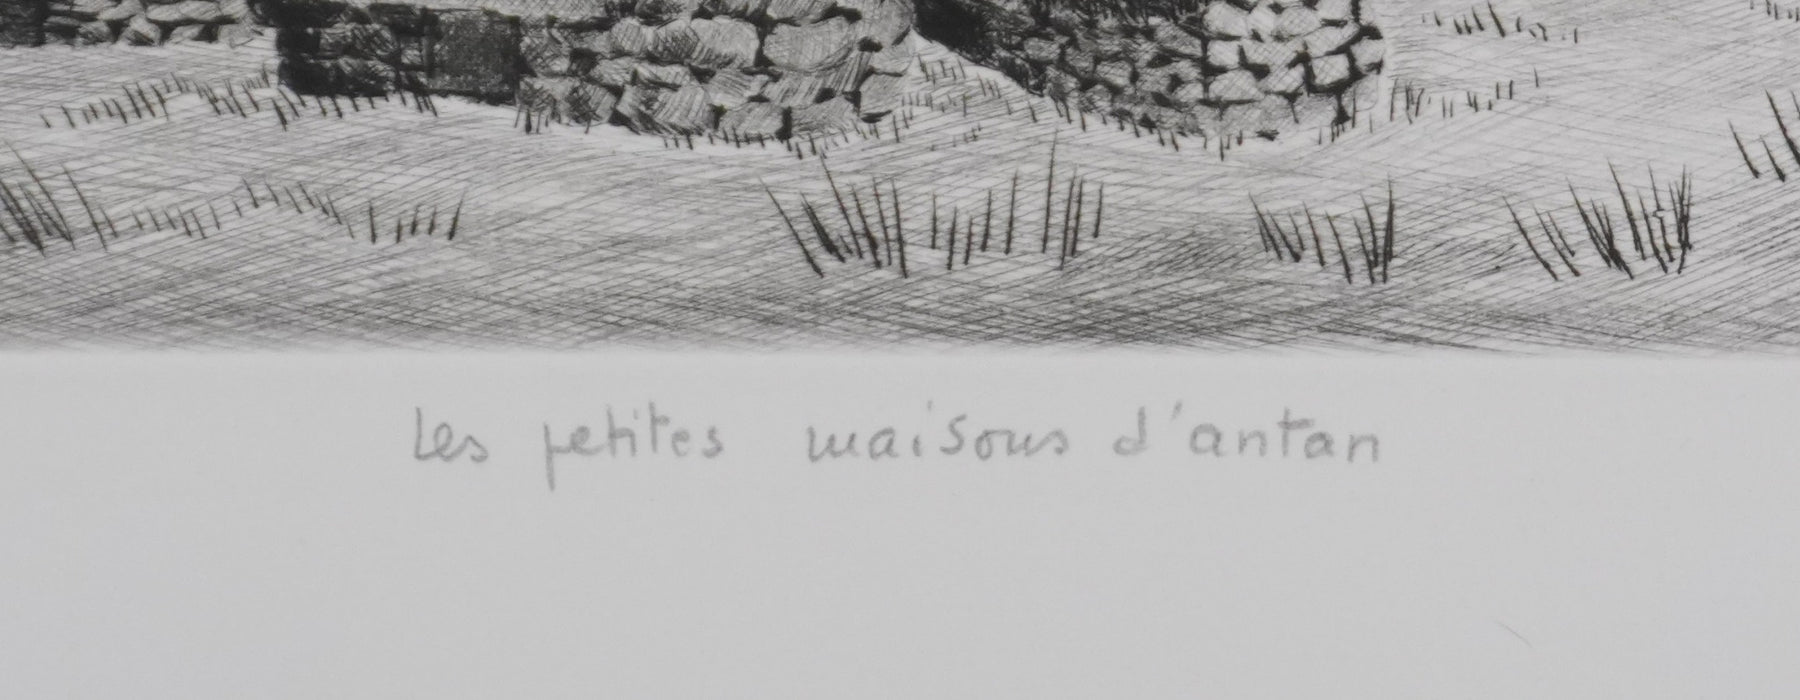 Les petites maisons d'antan